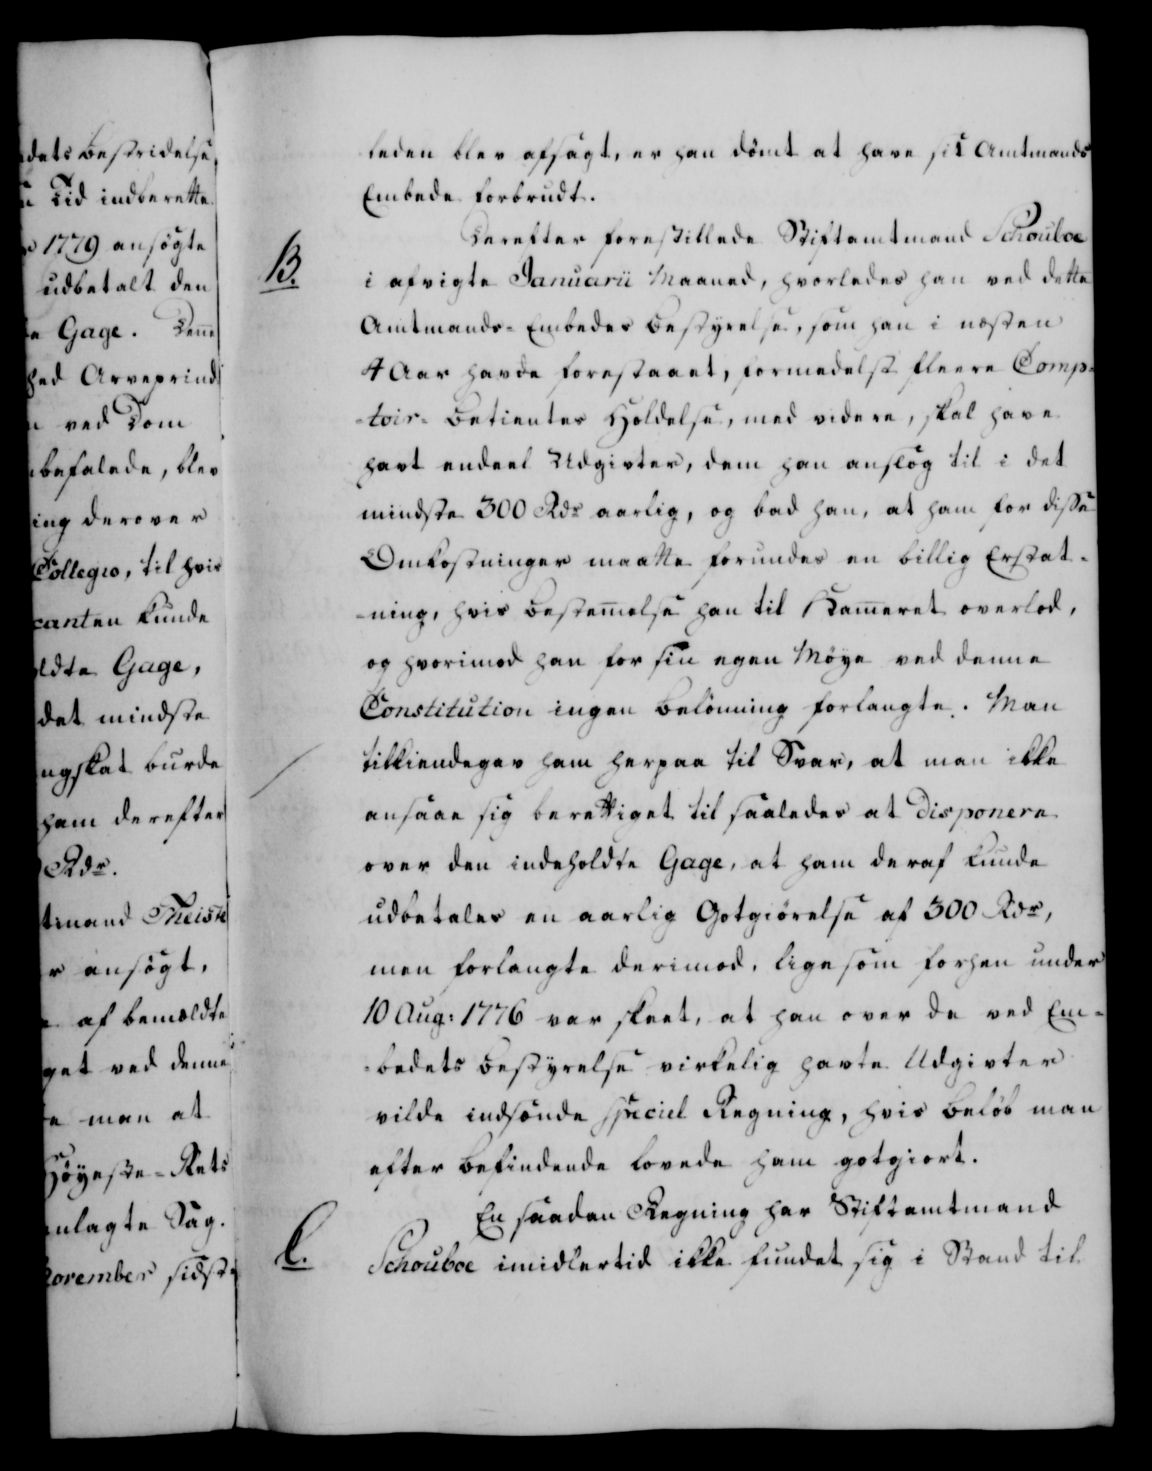 dets Bestridelse,
Tid indberette
1779 ansøgte
udbetalt den
Gage. Denne
hed Arveprinds
ved Dom
befalede, blev
ing derover
Collegio, til hvis
canten kunde
ldte Gage,
det mindste
ngskat burde
ham derefter
Rdr.
tmand Theiste
r ansøgt,
af bemældte
get ved denne
e man at
Høyeste-Rets
anlagte Sag.
November sidst-
leden blev afsagt, er han dömt at have sit Amtmands
Embede forbrudt.
B.
Derefter forestillede Stiftamtmand Schouboe
i afvigte Januarii Maaned, hvorledes han ved dette
Amtmands-Embedes Bestyrelse, som han i næsten
4 Aar havde forestaaet, formedelst fleere Comp-
-toir-Betienters Holdelse, med videre, skal have
havt endeel Udgivter, dem han anslog til i det
mindste 300 Rdr aarlig, og bad han, at ham for disse
Omkostninger maatte forundes en billig Erstat-
-ning, hvis Bestem̄else han til Kam̄eret overlod,
og hvorimod han for sin egen Møye ved denne
Constitution ingen Belönning forlangte. Man
tilkiendegav ham herpaa til Svar, at man ikke
ansaae sig berettiget til saaledes at disponere
over den indeholdte Gage, at ham deraf kunde
udbetales en aarlig Gotgiörelse af 300 Rdr,
men forlangte derimod, ligesom forhen under
10 Aug: 1776 var skeet, at han over de ved Em-
-bedets Bestyrelse virkelig havte Udgivter
vilde indsende speciel Regning, hvis Beløb man
efter Befindende lovede ham gotgiort.
C.
En saadan Regning har Stiftamtmand
Schouboe imidlertid ikke fundet sig i Stand til